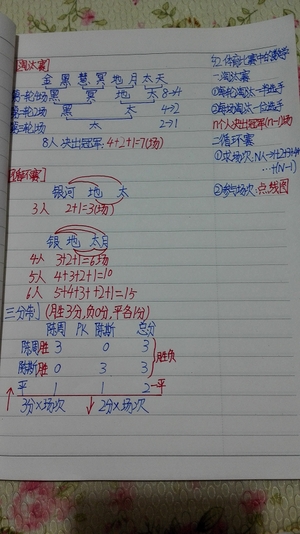 淘汰赛
金 黑 慧 冥 地 月 太 天
第一轮4场 黑 冥 地 太 8→4
第二轮2场 黑 太 4→2
第三轮1场 太 2→1
8人决出冠军: 4+2+1=7(场)
循环赛
银河 地 太
3人 2+1=3(场)
银 地 太 月
4人 3+2+1=6场
5人 4+3+2+1=10
6人 5+4+3+2+1=15
三分制 (胜3分,负0分,平各1分)
陈周 PK 陈斯 总分
陈周胜 3 0 3
陈斯胜 0 3 3
胜负
平 1 1 2 平
↑3分×场次 ↓2分×场次
体育比赛中的数学
一淘汰赛
①每轮淘汰一半选手
②每场淘汰一位选手
n个人决出冠军(n-1)场
二循环赛
①求场次: N人→1+2+3+4
…+(N-1)
②参与场次: 点线图